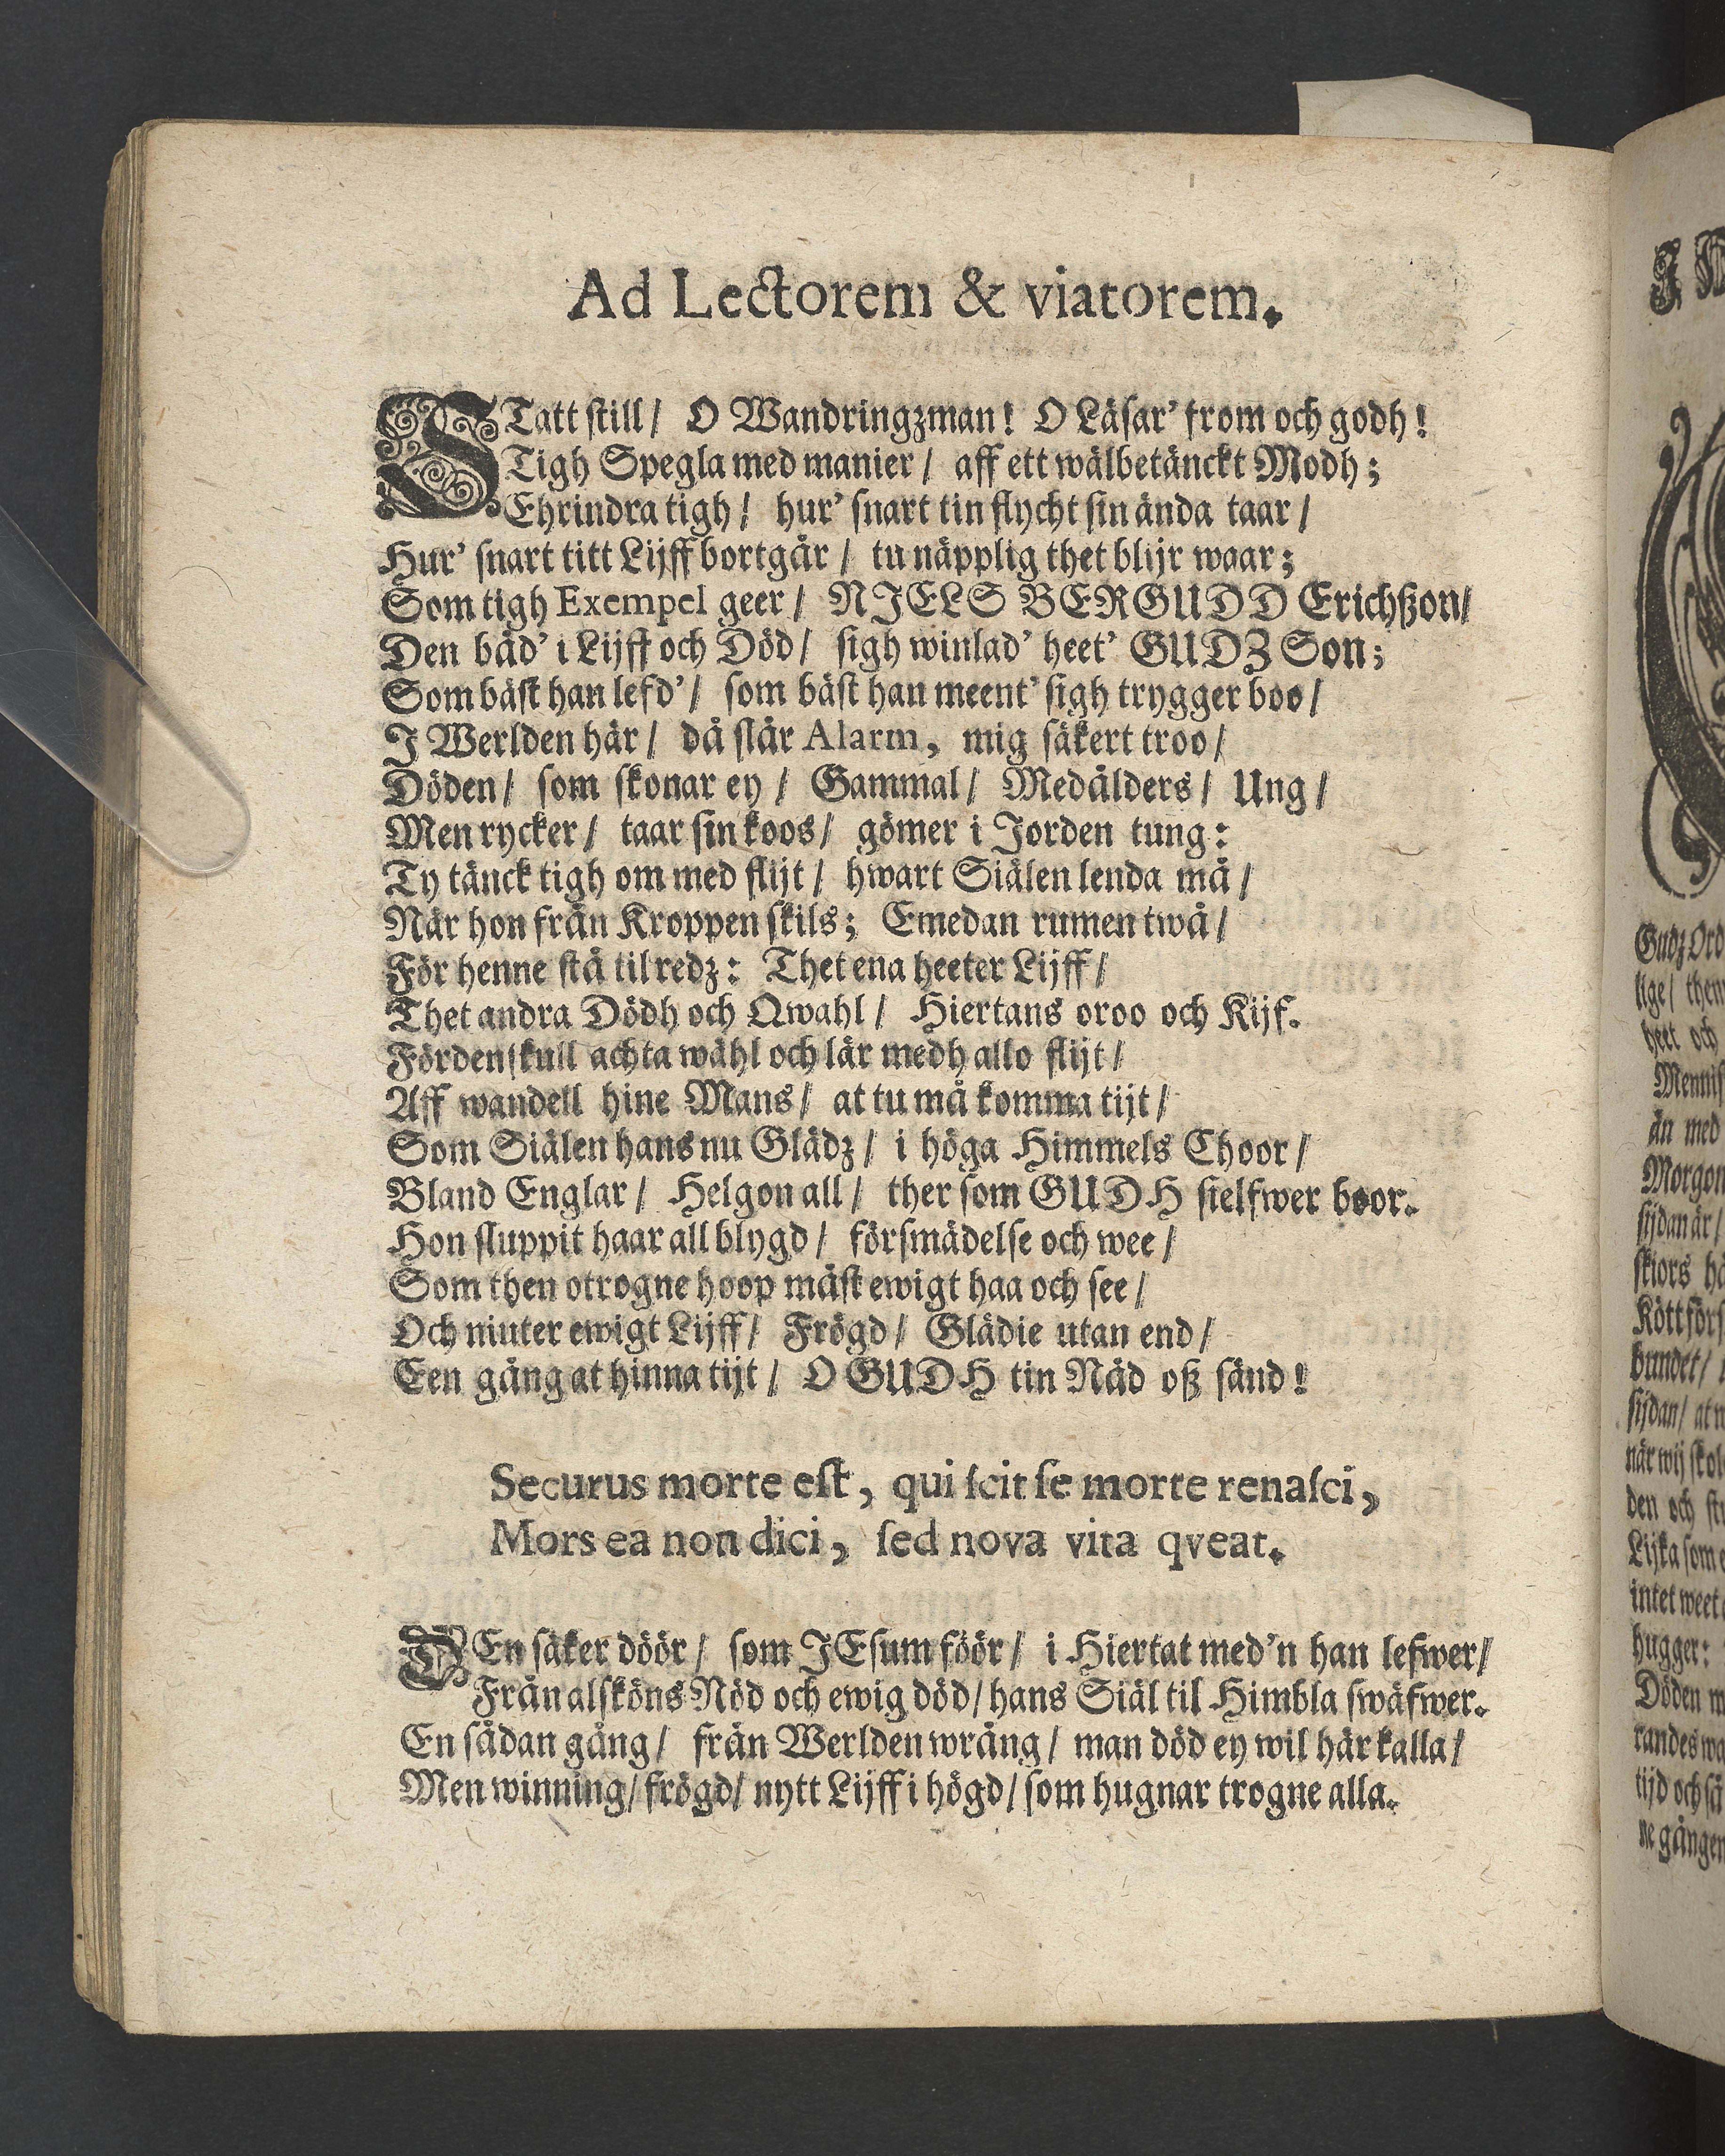 Ad Lectorem & viatorem.
STatt still/ O Wandringzman! O Läsar' from och godh!
Tigh Spegla med manier/ aff ett wälbetänckt Modh;
Ehrindra tigh/ hur' snart tin flycht sin ända taar/
Hur' snart titt Lijff bortgår/ tu näpplig thet blijr waar;
Som tigh Exempel geer/ NIELS BERGUDD Erichßon/
Den båd' i Lijff och Död/ sigh winlad' heet' GUDZ Son;
Som bäst han lefd'/ som bäst han meent' sigh trygger boo/
I Werlden här/ då slår Alarm, mig säkert troo/
Döden/ som skonar ey/ Gammal/ Medålders/ Ung/
Men rycker/ taar sin koos/ gömer i Jorden tung:
Ty tänck tigh om med flijt/ hwart Siälen lenda må/
När hon från Kroppen skils; Emedan rumen twå/
För henne stå til redz: Thet ena heeter Lijff/
Thet andra Dödh och Qwahl/ Hiertans oroo och Kijf.
Fördenskull achta wähl och lär medh allo flijt/
Aff wandell hine Mans/ at tu må komma tijt/
Som Siälen hans nu Glädz/ i höga Himmels Choor/
Bland Englar/ Helgon all/ ther som GUDH sielfwer boor.
Hon sluppit haar all blygd/ försmädelse och wee/
Som then otrogne hoop måst ewigt haa och see/
Och niuter ewigt Lijff/ Frögd/ Glädie utan end/
Een gång at hinna tijt/ O GUDH tin Nåd oß sänd!
Securus morte est, qui scit se morte renasci,
Mors ea non dici, sed nova vita qveat.
DEn säker döör/ som JEsum föör/ i Hiertat med'n han lefwer/
Från alsköns Nöd och ewig död/ hans Siäl til Himbla swäfwer.
En sådan gång/ från Werlden wrång/ man död ey wil här kalla/
Men winning/ frögd/ nytt Lijff i högd/ som hugnar trogne alla.